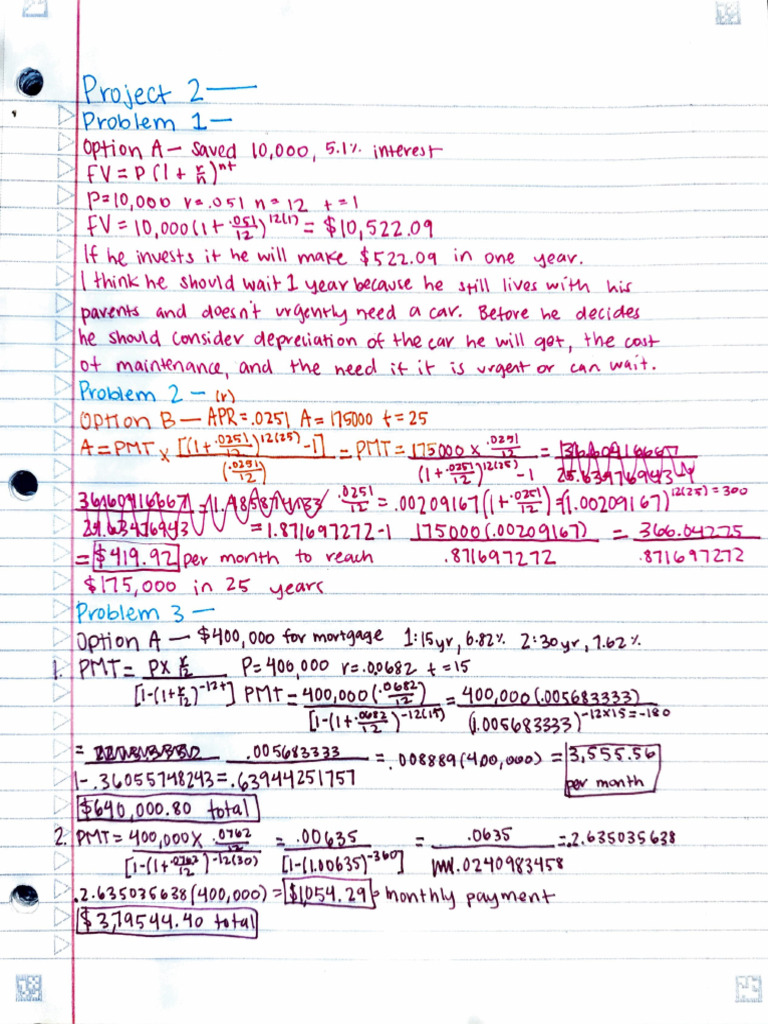 Project 2—
Problem 1—
Option A — saved 10,000, 5.1% interest
FV = P (1 + r/n)^nt
P=10,000 r=.051 n=12 t=1
FV = 10,000(1 + .051/12)^12(1) = $10,522.09
If he invests it he will make $522.09 in one year.
I think he should wait 1 year because he still lives with his
parents and doesn't urgently need a car. Before he decides
he should consider depreciation of the car he will get, the cost
of maintenance, and the need if it is urgent or can wait.
Problem 2 — (r)
Option B — APR=.0251 A=175000 t=25
A = PMT x [(1+ .0251/12)^12(25) -1] / (.0251/12) = PMT = 175000 x .0251/12 / (1+ .0251/12)^12(25) - 1 =
.0251/12 = .00209167 (1+ .0251/12) = (1.00209167)^12(25) = 300
= 1.871697272-1 175000(.00209167) / .871697272 = 366.04225 / .871697272
= $419.92 per month to reach
$175,000 in 25 years
Problem 3 —
Option A — $400,000 for mortgage 1: 15yr, 6.82% 2: 30yr, 7.62%
1. PMT = P x r/12 / [1-(1+ r/12)^-12t] P=400,000 r=.0682 t=15
PMT = 400,000(.0682/12) / [1-(1+ .0682/12)^-12(15)] = 400,000(.005683333) / (1.005683333)^-12x15=-180
= .005683333 / 1-.36055748243=.63944251757 = .008889(400,000) = 3,555.56 per month
$640,000.80 total
2. PMT = 400,000 x .0762/12 / [1-(1+ .0762/12)^-12(30)] = .00635 / [1-(1.00635)^-360] = .0635 / .0240983458 = .2.635035638
.2.635035638(400,000) = $1,054.29 = monthly payment
$379544.40 total